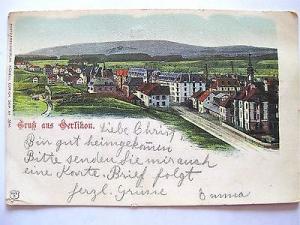 Gruß aus Oerlikon.
Liebe Chrisy
Bin gut heimgekommen
Bitte senden Sie mir auch
eine Karte. Brief folgt
herzl. Grüsse
Emma